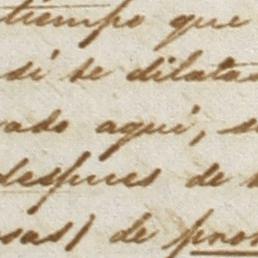 tiempo que
si se dilata
ado aqui, s
despues de
sas) de pron